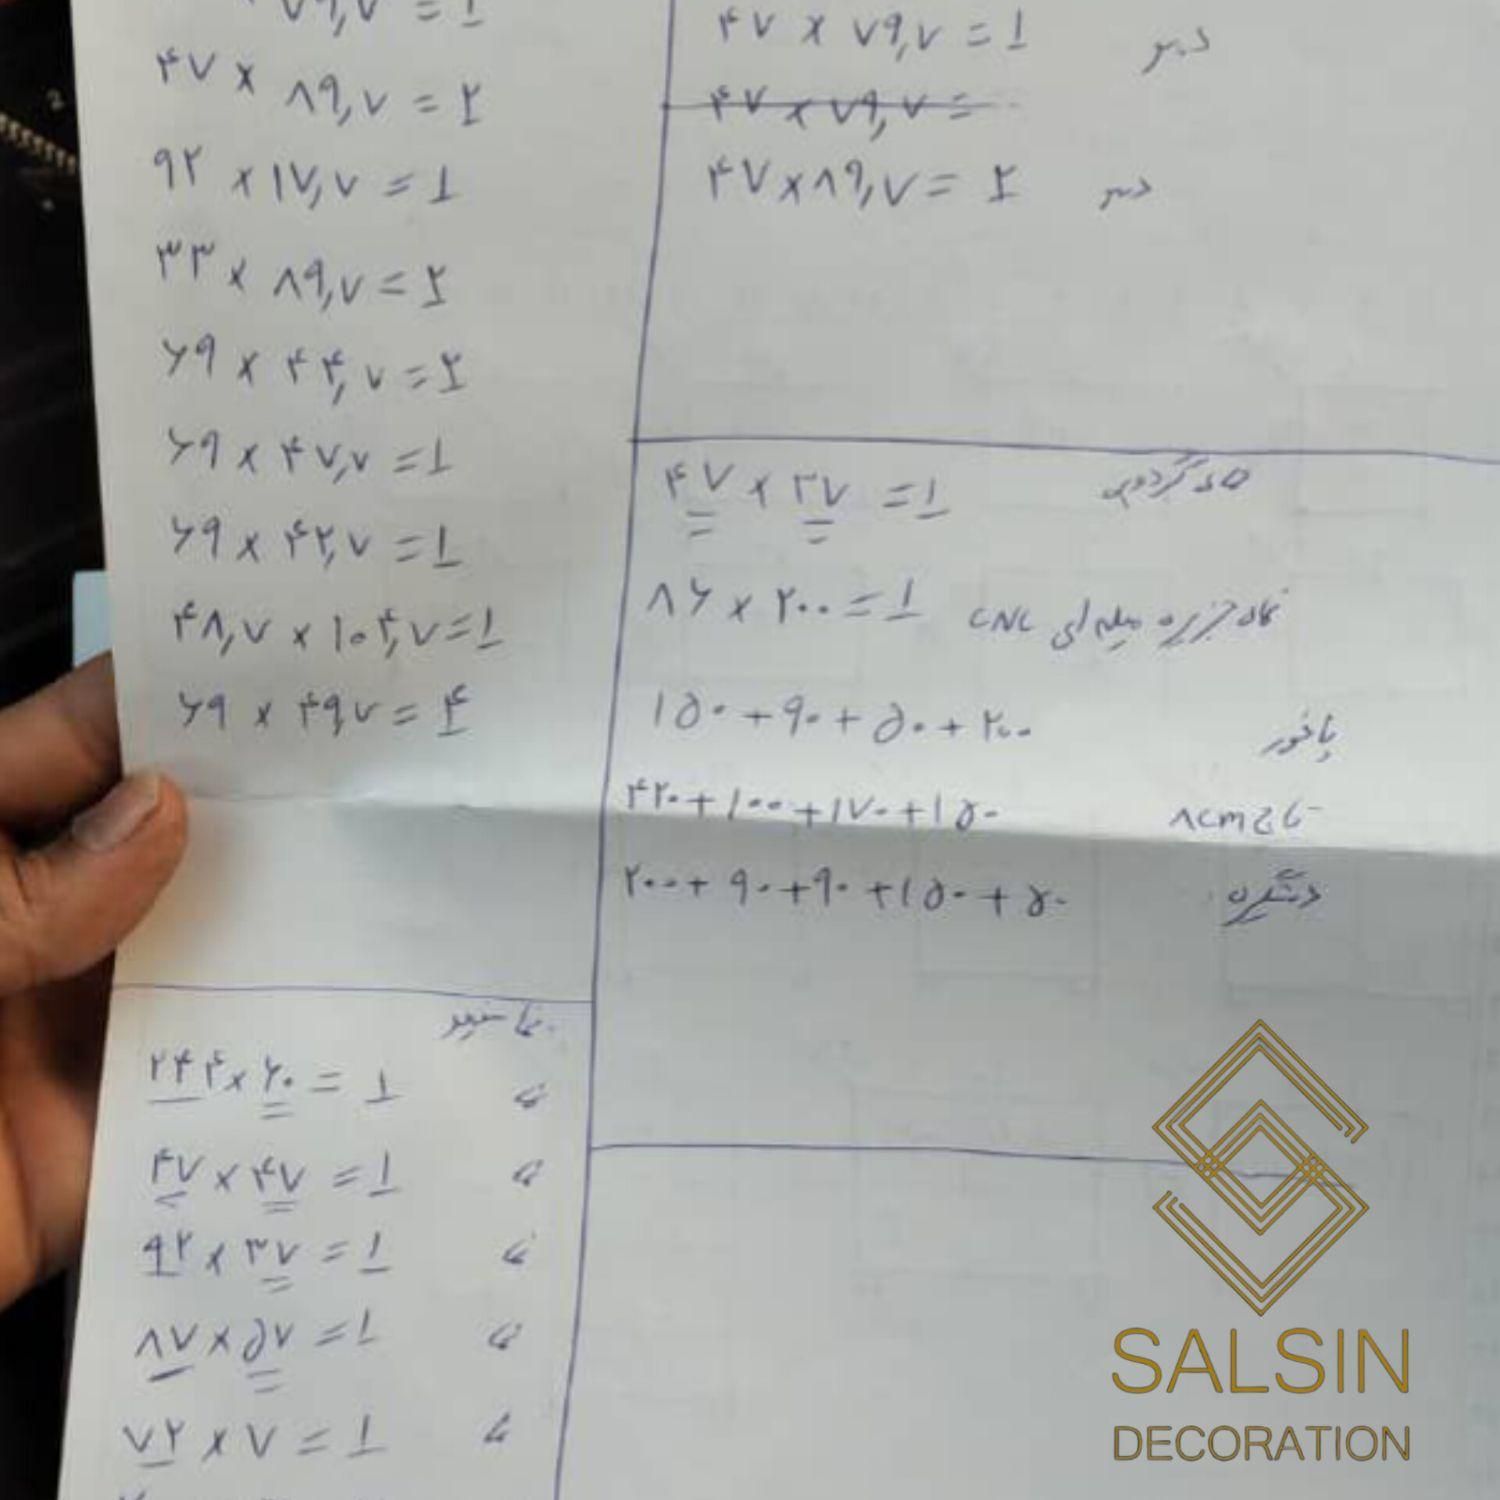 ۷۹٫۷ = ۱
۴۷ × ۸۹٫۷ = ۲
۹۲ × ۱۷٫۷ = ۱
۳۳ × ۸۹٫۷ = ۲
۶۹ × ۴۴٫۷ = ۲
۶۹ × ۴۷٫۷ = ۱
۶۹ × ۴۲٫۷ = ۱
۴۸٫۷ × ۱۰۴٫۷ = ۱
۶۹ × ۴۹۷ = ۴
۲۴۴ × ۲۰ = ۱
۴۷ × ۴۷ = ۱
۹۲ × ۳۷ = ۱
۸۷ × ۵۷ = ۱
۷۲ × ۷ = ۱
۴۷ × ۷۹٫۷ = ۱
۴۷ × ۷۹٫۷ =
۴۷ × ۸۹٫۷ = ۲
۴۷ × ۳۷ = ۱
۸۶ × ۲۰۰ = ۱ CNC
۱۵۰ + ۹۰ + ۵۰ + ۲۰۰ پاخور
۴۲۰ + ۱۰۰ + ۱۷۰ + ۱۵۰ تاج ۸cm
۲۰۰ + ۹۰ + ۹۰ + ۱۵۰ + ۵۰ دستگیره
SALSIN
DECORATION